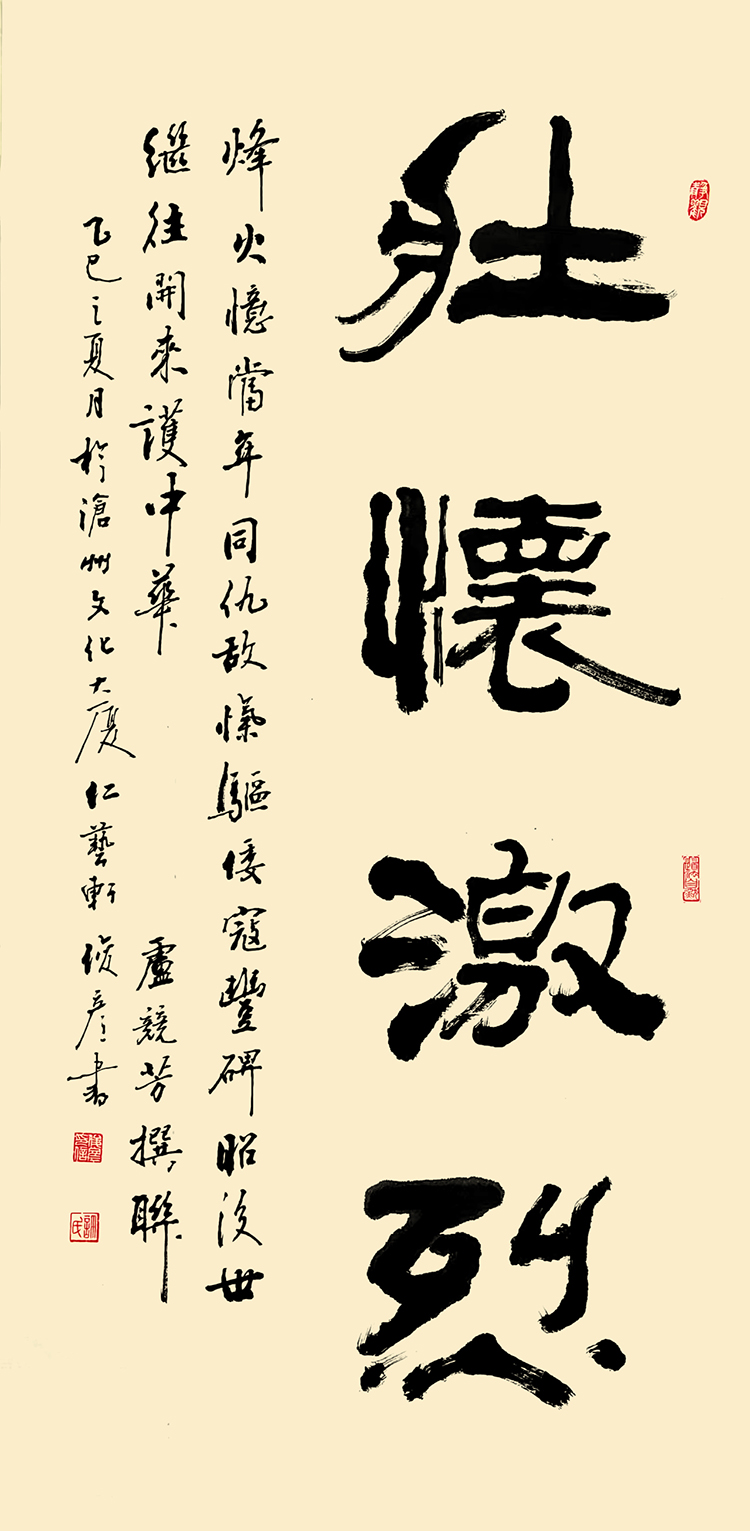 壯懷激烈
烽火憶當年同仇敌愾驅倭寇豐碑昭後世
繼往開來護中華 盧競芳撰聯
乙巳之夏月於滄州文化大廈仁藝軒俊彦書